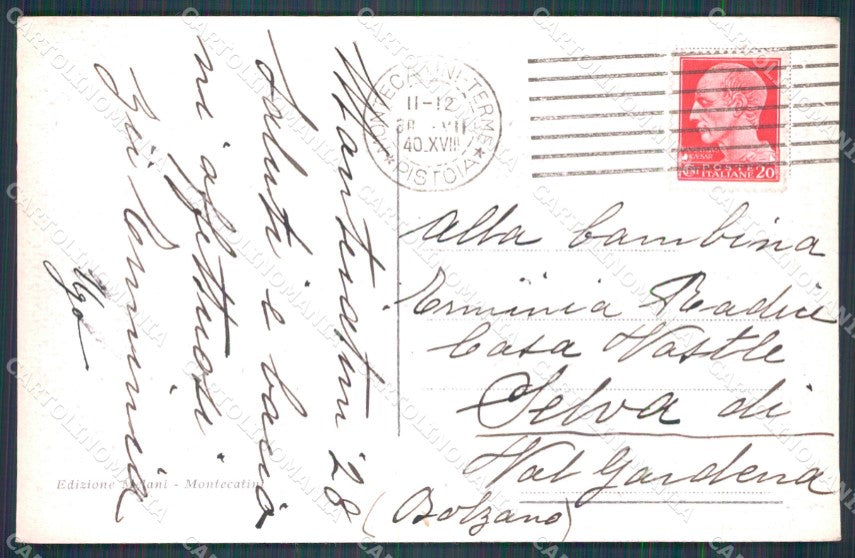 Montecatini 28
Saluti e baci
ni affettuosi
Zia Erminia
Ugo
Edizione Milani - Montecatini
MONTECATINI-TERME
11-12
40.XVIII
* PISTOIA *
CESARE
POSTE ITALIANE 20
Alla bambina
Erminia Readici
Casa Nostle
Selva di
Val Gardena
(Bolzano)
CARTOLINOMANIA